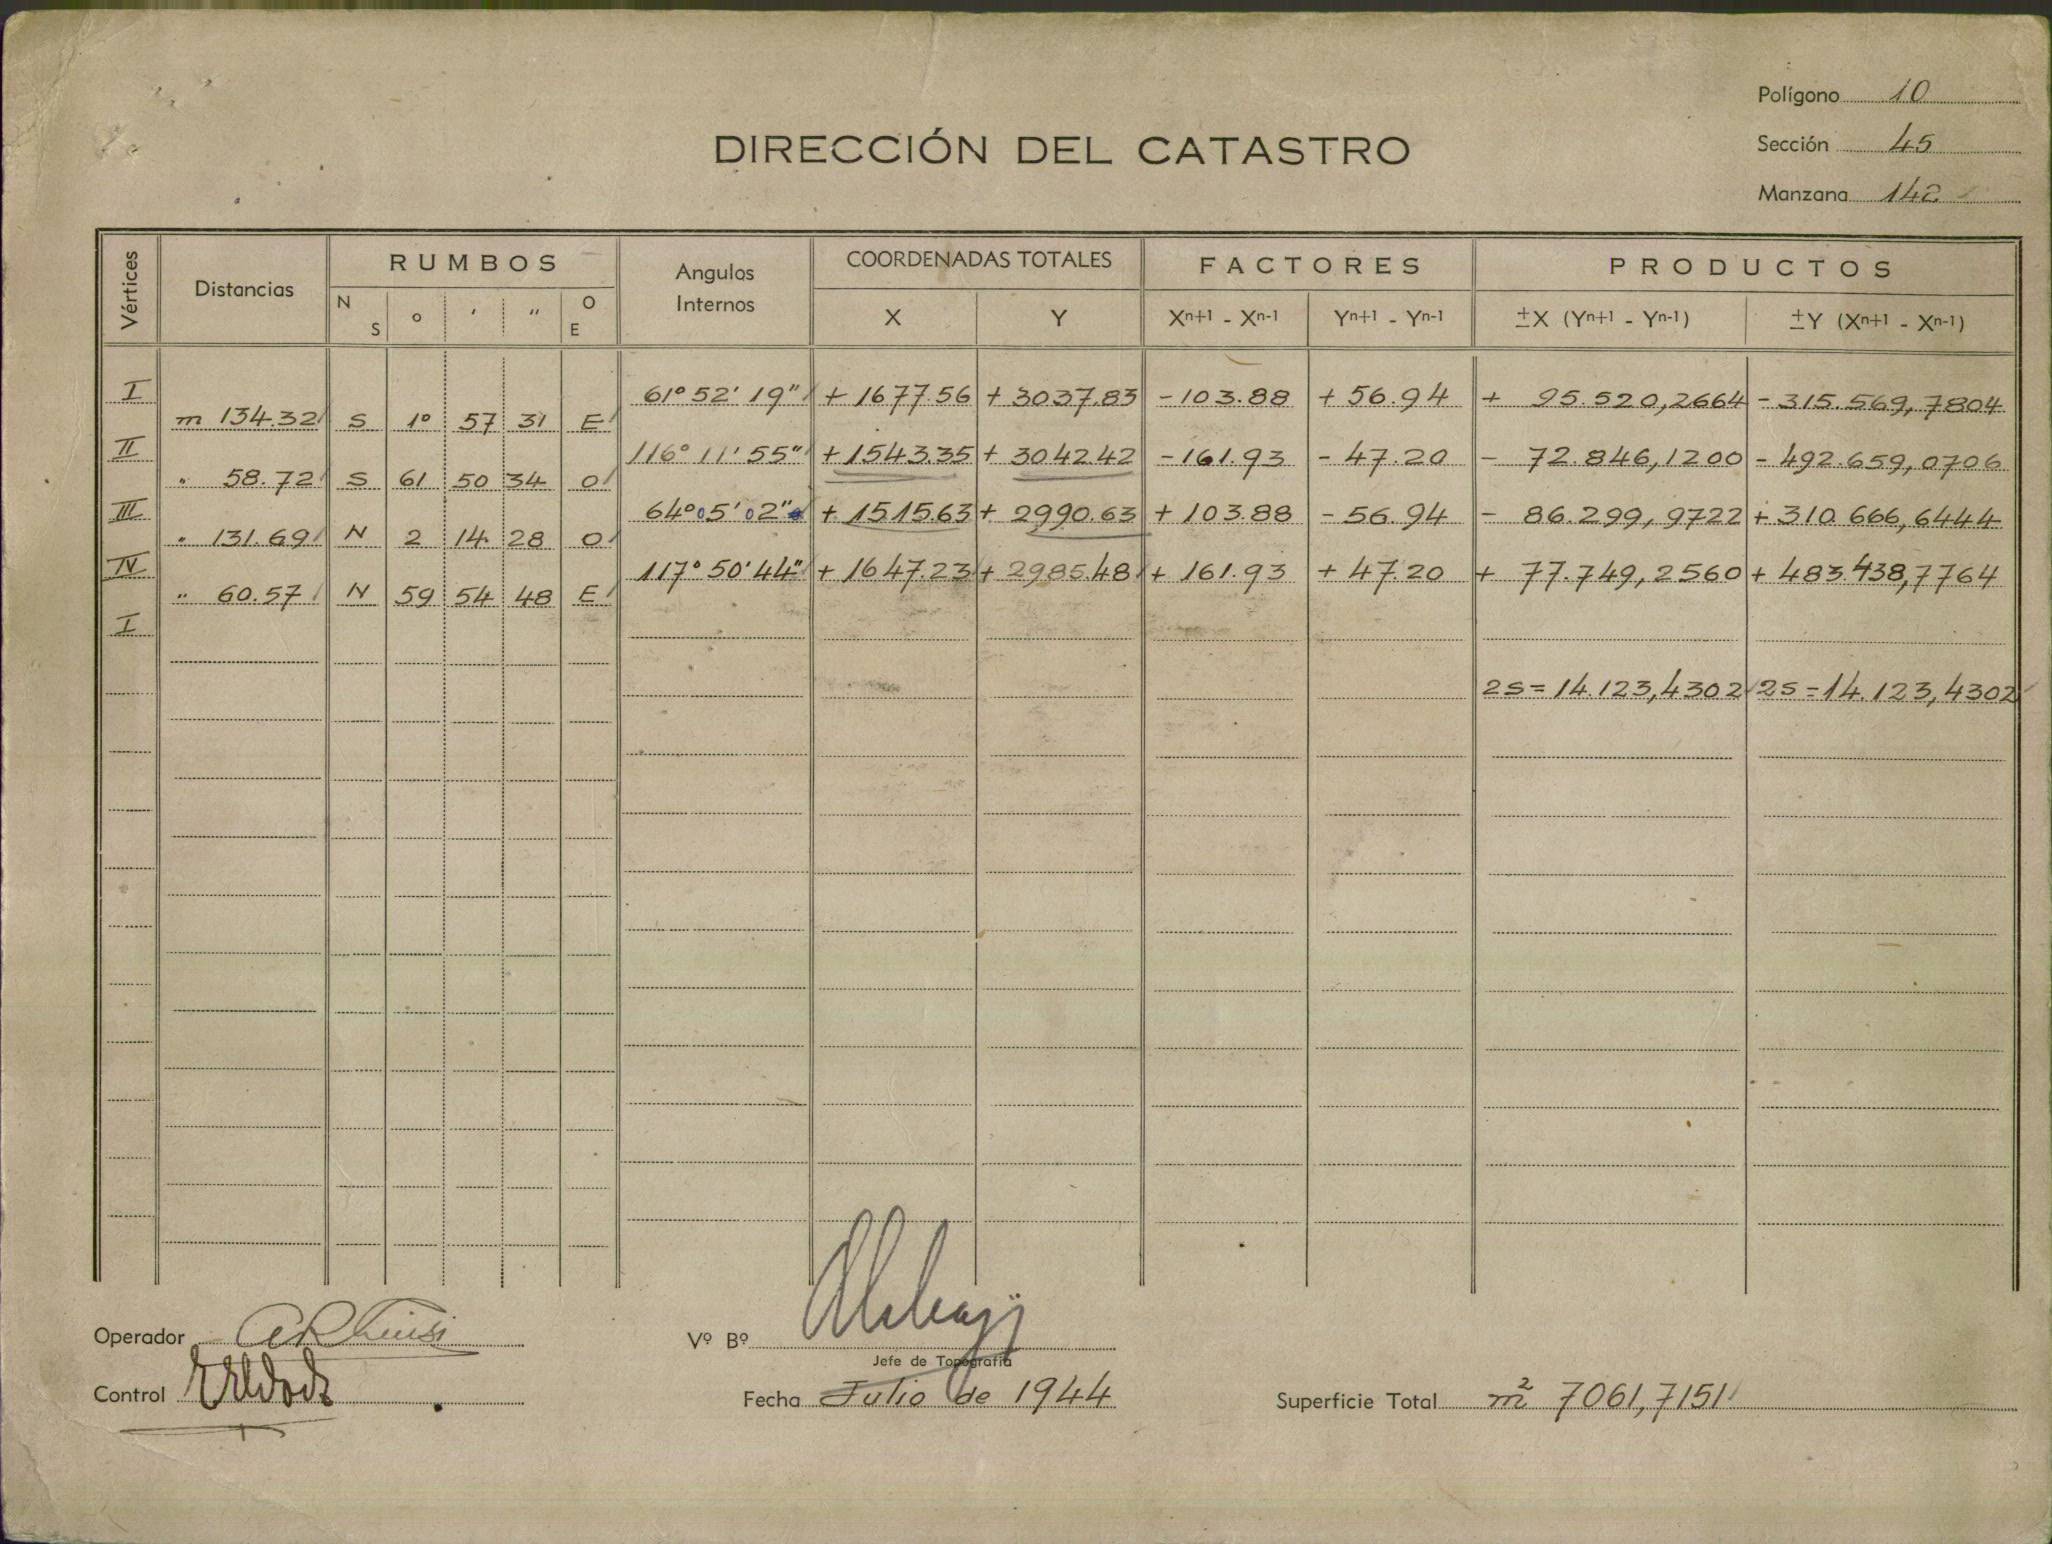 Polígono 10
DIRECCIÓN DEL CATASTRO
Sección 45
Manzana 142
Vértices
Distancias
RUMBOS
N S
o
'
"
O E
Angulos Internos
COORDENADAS TOTALES
X
Y
FACTORES
Xn+1 - Xn-1
Yn+1 - Yn-1
PRODUCTOS
±X (Yn+1 - Yn-1)
±Y (Xn+1 - Xn-1)
I 61° 52' 19" + 1677.56 + 3037.83 - 103.88 + 56.94 + 95.520,2664 - 315.569,7804
m 134.32 S 1° 57 31 E
II 116° 11' 55" + 1543.35 + 3042.42 - 161.93 - 47.20 - 72.846,1200 - 492.659,0706
" 58.72 S 61 50 34 O
III 64° 05' 02" + 1515.63 + 2990.63 + 103.88 - 56.94 - 86.299,9722 + 310.666,6444
" 131.69 N 2 14 28 O
IV 117° 50' 44" + 1647.23 + 2985.48 + 161.93 + 47.20 + 77.749,2560 + 483.438,7764
" 60.57 N 59 54 48 E
I
2S = 14.123,4302 2S = 14.123,4302
Operador
Vº Bº
Jefe de Topografía
Control
Fecha Julio de 1944
Superficie Total m² 7061,7151